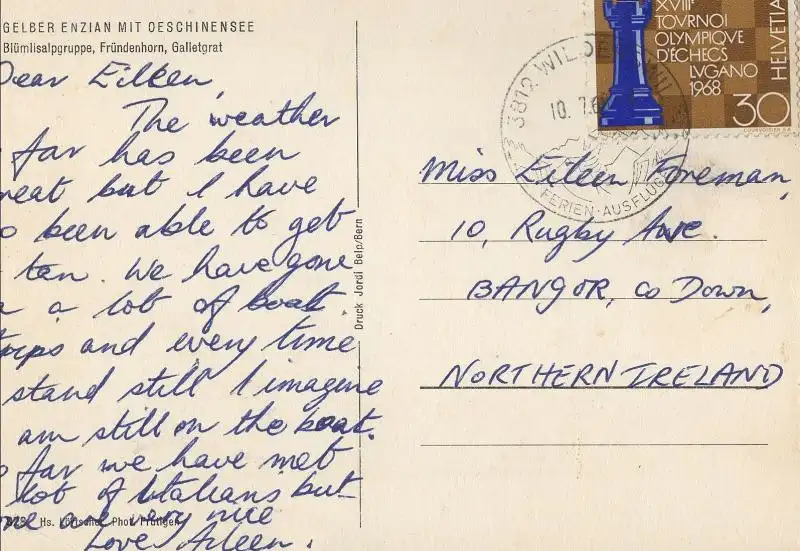 GELBER ENZIAN MIT OESCHINENSEE
Blümlisalpgruppe, Fründenhorn, Galletgrat
Dear Eileen,
The weather
far has been
reat but I have
o been able to get
tan. We have gone
a lot of boat
rips and every time
stand still I imagine
am still on the boat.
far we have met
lot of Italians but
are very nice
Love Aileen.
Hs. Phot. Frutigen
Druck Jordi Belp/Bern
XVIIIe
TOVRNOI
OLYMPIQVE
D'ÉCHECS
LVGANO
1968
30
HELVETIA
COURVOISIER S.A.
3812 WILDERSWIL
10. 7.6
FERIEN-AUSFLUG
Miss Eileen Foreman,
10, Rugby Ave.
BANGOR, Co Down,
NORTHERN IRELAND